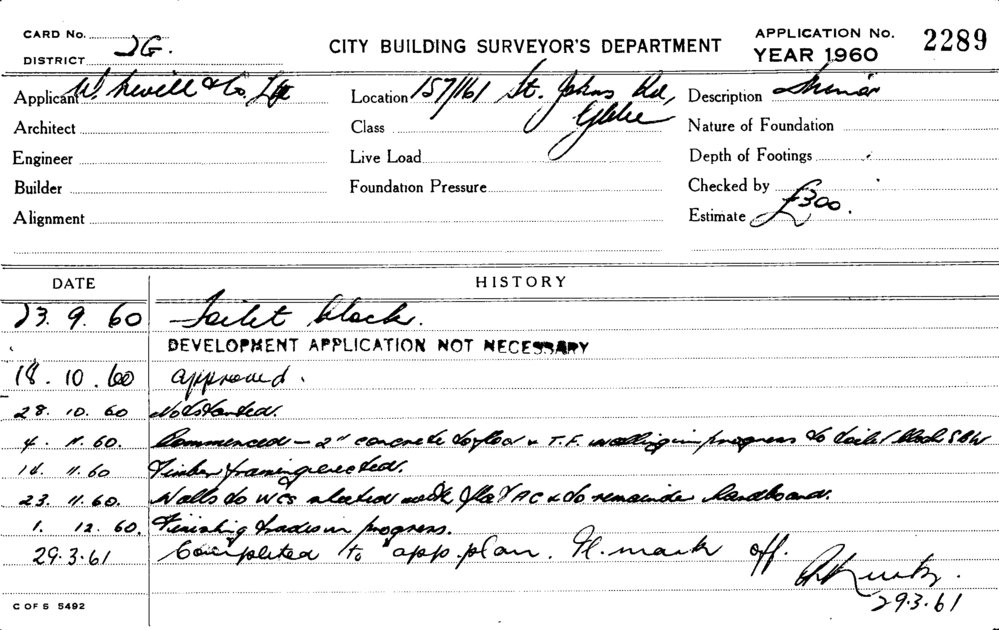 CARD No.
DISTRICT 2G.
CITY BUILDING SURVEYOR'S DEPARTMENT
APPLICATION No. 2289
YEAR 1960
Applicant W. Nevill & Co. Ltd
Location 157/161 St. Johns Rd, Glebe
Description Minor
Architect
Class
Nature of Foundation
Engineer
Live Load
Depth of Footings
Builder
Foundation Pressure
Checked by
Alignment
Estimate £300.
DATE HISTORY
23. 9. 60 Toilet block.
DEVELOPMENT APPLICATION NOT NECESSARY
18. 10. 60 approved.
28. 10. 60 Not started.
4. 11. 60. Commenced – 2" concrete to floor & T.F. walling in progress to toilet block
14. 11. 60 Timber framing erected.
23. 11. 60. Walls to WCs sheeted with flat AC & to remainder Hardboard.
1. 12. 60. Finishing trades in progress.
29.3.61 Completed to app. plan. Pl. mark off.
29.3.61
C OF S 5492